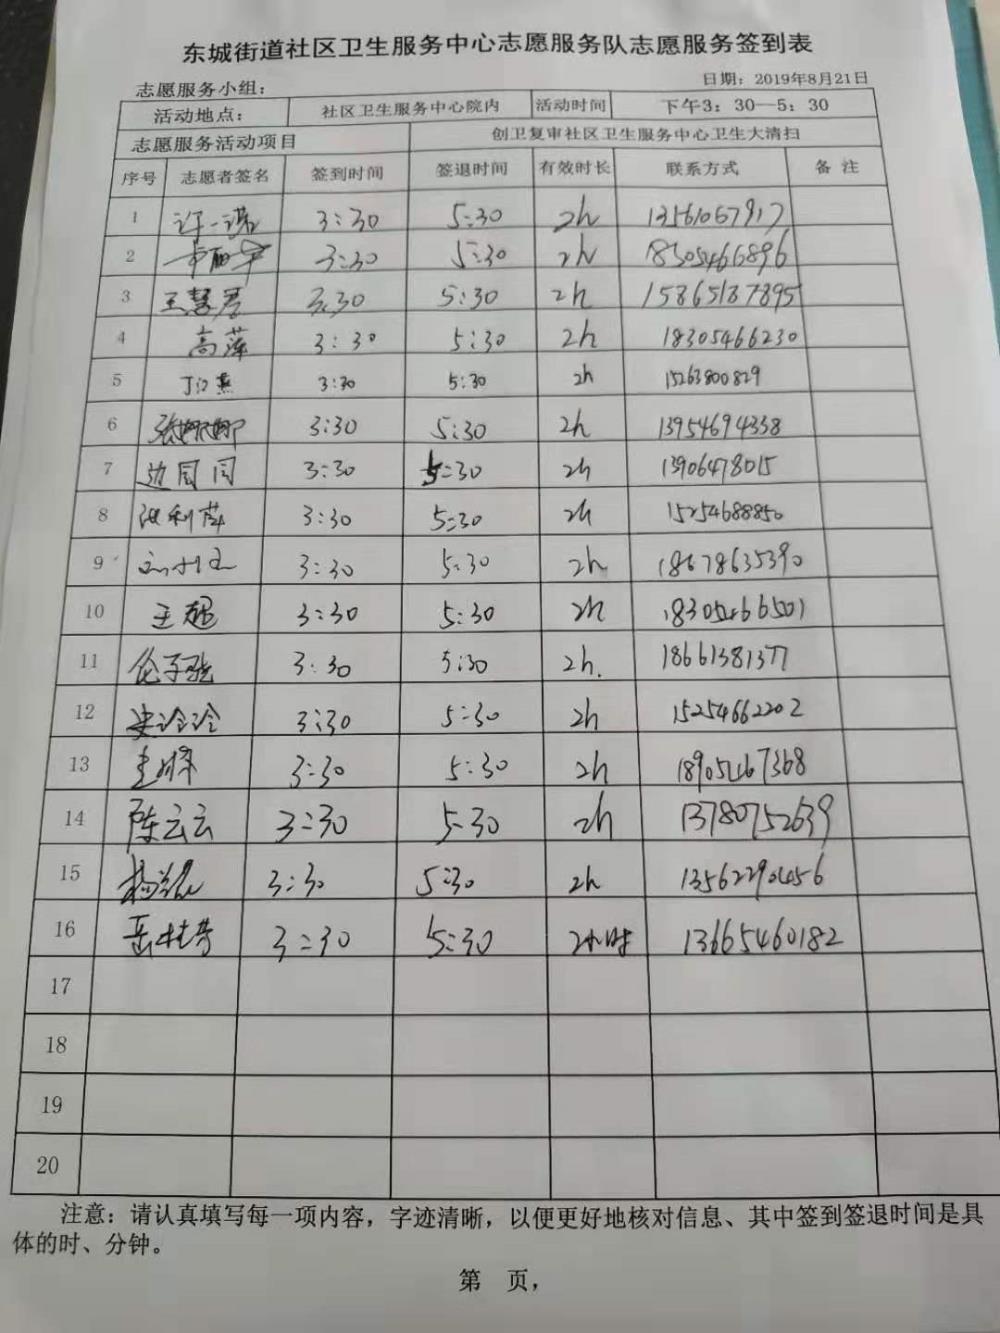 东城街道社区卫生服务中心志愿服务队志愿服务签到表
志愿服务小组： 日期：2019年8月21日
活动地点： 社区卫生服务中心院内 活动时间 下午3：30—5：30
志愿服务活动项目 创卫复审社区卫生服务中心卫生大清扫
序号 志愿者签名 签到时间 签退时间 有效时长 联系方式 备注
1 3:30 5:30 2h 13561067917
2 3:30 5:30 2h 18305466896
3 王慧君 3:30 5:30 2h 15865187895
4 高萍 3:30 5:30 2h 18305466230
5 丁江燕 3:30 5:30 2h 15263800829
6 张娜娜 3:30 5:30 2h 13954694338
7 边园园 3:30 5:30 2h 13906478015
8 3:30 5:30 2h 15254688850
9 3:30 5:30 2h 18678635390
10 王超 3:30 5:30 2h 18305466501
11 3:30 5:30 2h. 18661381377
12 安泠泠 3:30 5:30 2h 15254662202
13 3:30 5:30 2h 18905467368
14 陈云云 3:30 5:30 2h 13780752639
15 3:30 5:30 2h 13562290456
16 岳桂芳 3:30 5:30 2小时 13665460182
17
18
19
20
注意：请认真填写每一项内容，字迹清晰，以便更好地核对信息、其中签到签退时间是具
体的时、分钟。
第 页，